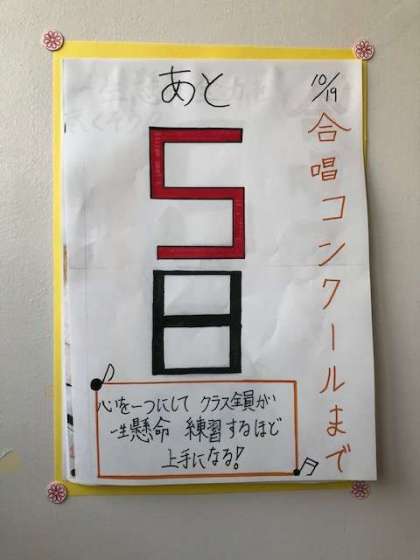 10/19
合唱コンクールまで
あと
5
日
心を一つにして クラス全員が
一生懸命 練習するほど
上手になる!